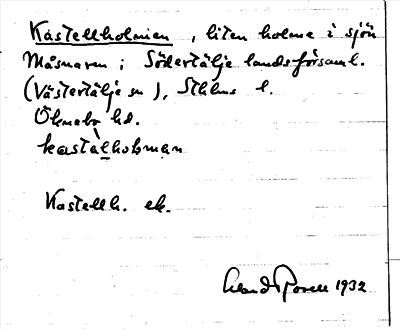 Kastellholmen, liten holme i sjön
Måsnaren i Södertälje landsförsaml.
(Västertälje sn), Sthlms l.
Öknebo hd.
kastàlholman
Kastellh. ek.
1932